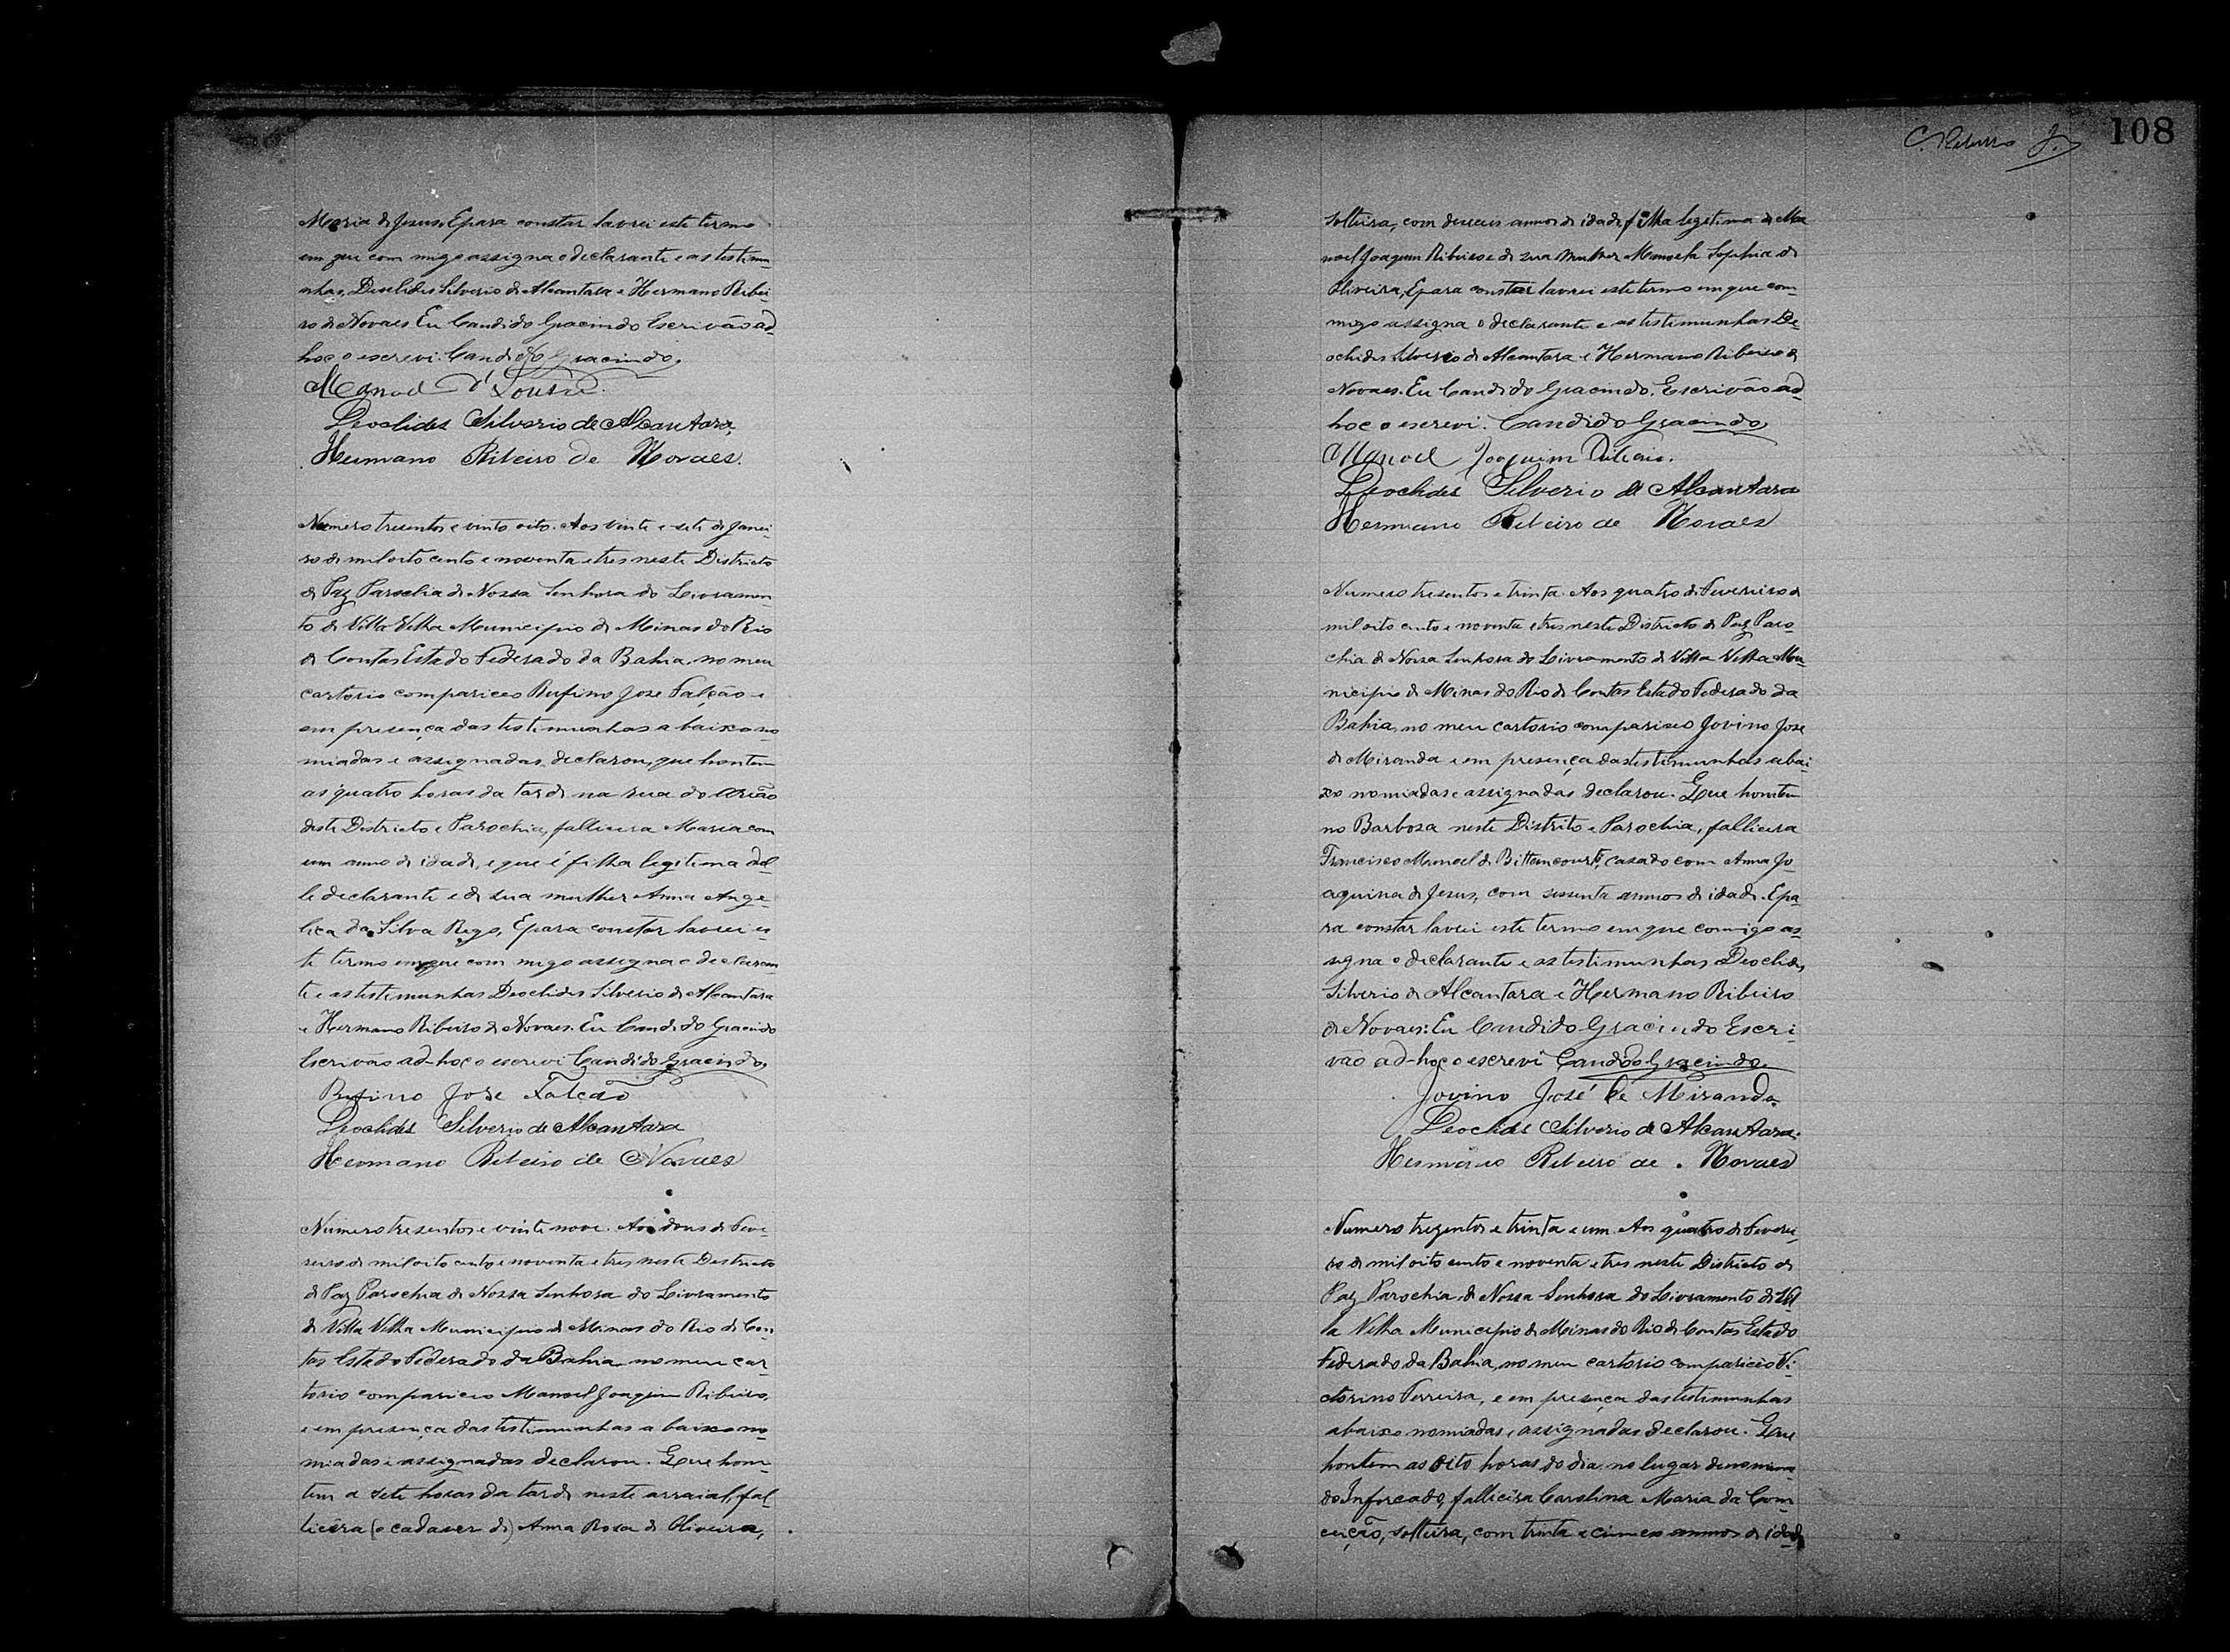 Maria de Jesus. E para constar lavrei este termo
em que com migo assigna o declarante e as testimu-
nhas, Deoclides Silverio de Alcantara e Hermano Ribei-
ro de Novaes Eu Candido Gracindo Escrivão ad-
hoc o escrevi. Candido Gracindo.
Manoel
Deoclides Silverio de Alcantara,
Hermano Ribeiro de Novaes.
Numero tresentos e vinte oito. Aos vinte e sete de Janei-
ro de mil oito cento e noventa e tres neste Districto
de Paz Parochia de Nossa Senhora do Livramen-
to de Villa Velha Municipio de Minas do Rio
de Contas Estado Federado da Bahia, no meu
cartorio compariceo Rufino Jose Falcão e
em presença das testimunhas a baixo no-
miadas e assignadas, declarou, que hontem
as quatro horas da tarde na rua do
deste Districto e Parochia, fallicera Maria com
um anno de idade, e que é filha legitima del-
le declarante e de sua mulher Anna Ange-
lica da Silva Rego, E para constar lavrei es-
te termo em que com migo assigna o declaran-
te e as testimunhas Deoclides Silverio de Alcantara
e Hermano Ribeiro de Novaes. Eu Candido Gracindo
Escrivão ad-hoc o escrevi Candido Gracindo.
Rufino Jose Falcão
Deoclides Silverio de Alcantara
Hermano Ribeiro de Novaes
Numero tresentos e vinte nove. Aos dous de Feve-
reiro de mil oito cento e noventa e tres neste Districto
de Paz Parochia de Nossa Senhora do Livramento
de Villa Velha Municipio de Minas do Rio de Con-
tas Estado Federado da Bahia, no meu car-
torio compariceo Manoel Joaquim Ribeiro,
e em presença das testimunhas a baixo no-
miadas e assignadas declarou. Que hon-
tem a sete horas da tarde neste arraial, fal-
licêra (o cadaver de) Anna Rosa de Oliveira,
108
solteira, com deseseis annos de idade, filha legitima de Ma
noel Joaquim Ribeiro e de sua mulher Manoela Sophia de
Oliveira, E para constar lavrei este termo em que com
migo assigna o declarante e as testimunhas De-
oclides Silverio de Alcantara e Hermano Ribeiro de
Novaes. Eu Candido Gracindo, Escrivão ad-
hoc o escrevi. Candido Gracindo,
Manoel Joaquim Ribeiro.
Deoclides Silverio de Alcantara
Hermano Ribeiro de Novaes
Numero tresentos e trinta. Aos quatro de Fevereiro de
mil oito cento e noventa e tres neste Districto de Paz Paro-
chia de Nossa Senhora do Livramento de Villa Velha Mu-
nicipio de Minas do Rio de Contas Estado Federado da
Bahia, no meu cartorio compariceo Jovino Jose
de Miranda e em presença das testimunhas abai-
xo nomiadas e assignadas declarou. Que hontem
no Barbosa neste Distrito e Parochia, fallicera
Francisco Manoel de Bittencourt, casado com Anna Jo
aquina de Jesus, com sessenta annos de idade. E pa-
ra constar lavrei este termo em que comigo as-
signa o declarante e as testimunhas Deoclides
Silverio de Alcantara e Hermano Ribeiro
de Novaes: Eu Candido Gracindo Escri-
vão ad-hoc o escrevi Candido Gracindo.
Jovino José de Miranda.
Deoclides Silverio de Alcantara.
Hermano Ribeiro de Novaes
Numero trezentos e trinta e um Aos quatro de Feverei-
ro de mil oito cento e noventa e tres neste Districto de
Paz Parochia de Nossa Senhora do Livramento de Vil
la Velha Municipio de Minas do Rio de Contas Estado
Federado da Bahia, no meu cartorio compariceo Vi-
ctorino Ferreira, e em presença das testimunhas
abaixo nomiadas e assignadas declarou. Que
hontem as oito horas do dia no lugar denomina
do Inforcado, fallicêra Carolina Maria da Con-
ceição, solteira, com trinta e cinco annos de idade